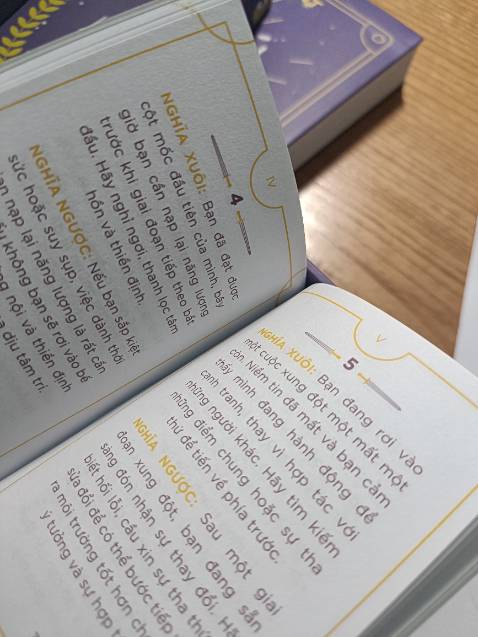 IV
4
NGHĨA XUÔI: Bạn đã đạt được
cột mốc đầu tiên của mình, bây
giờ bạn cần nạp lại năng lượng
trước khi giai đoạn tiếp theo bắt
đầu. Hãy nghỉ ngơi, thanh lọc tâm
hồn và thiền định.
NGHĨA NGƯỢC: Nếu bạn sắp kiệt
sức hoặc suy sụp, việc dành thời
nạp lại năng lượng là rất cần
không bạn sẽ rơi vào bế
nội và thiền định
dịu tâm trí.
V
5
NGHĨA XUÔI: Bạn đang rơi vào
một cuộc xung đột một mất một
còn. Niềm tin đã mất và bạn cảm
thấy mình đang hành động để
cạnh tranh, thay vì hợp tác với
những người khác. Hãy tìm kiếm
những điểm chung hoặc sự tha
thứ để tiến về phía trước.
NGHĨA NGƯỢC: Sau một giai
đoạn xung đột, bạn đang sẵn
sàng đón nhận sự thay đổi. Hã
biết hối lỗi, cầu xin sự tha thứ
sửa đổi để có thể bước tiếp
ra môi trường tốt hơn ch
ý tưởng và sự hợp t